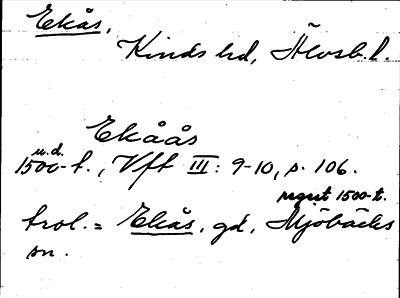 Ekås,
Kinds hd, Älvsb. l.
Ekåås
u.d.
1500-t., Vft III: 9-10, s. 106.
1500-t.
trol. = Ekås, gd, Mjöbäcks
sn.